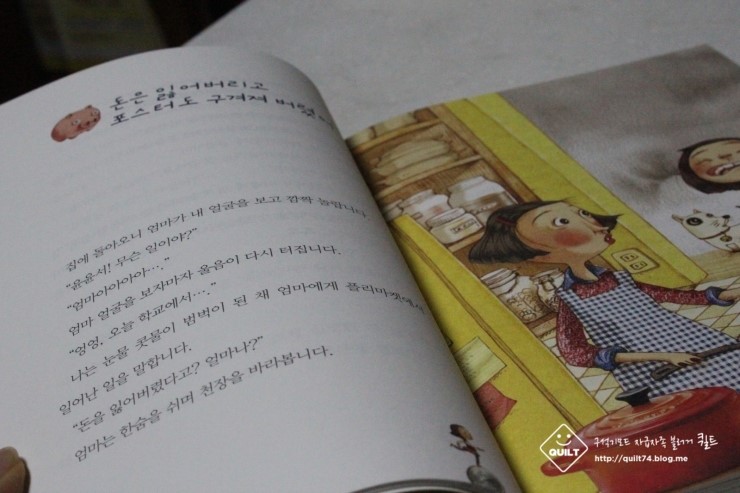 돈은 잃어버리고
포스터도 구겨져 버렸
집에 돌아오니 엄마가 내 얼굴을 보고 깜짝 놀랍니다
"윤윤서! 무슨 일이야?"
"엄마아아아아…."
엄마 얼굴을 보자마자 울음이 다시 터집니다.
"엉엉, 오늘 학교에서…."
나는 눈물 콧물이 범벅이 된 채 엄마에게 플리마켓에서
일어난 일을 말합니다.
"돈을 잃어버렸다고? 얼마나?"
엄마는 한숨을 쉬며 천장을 바라봅니다.
QUILT
구석기모드 자급자족 블로거 퀼트
http://quilt74.blog.me